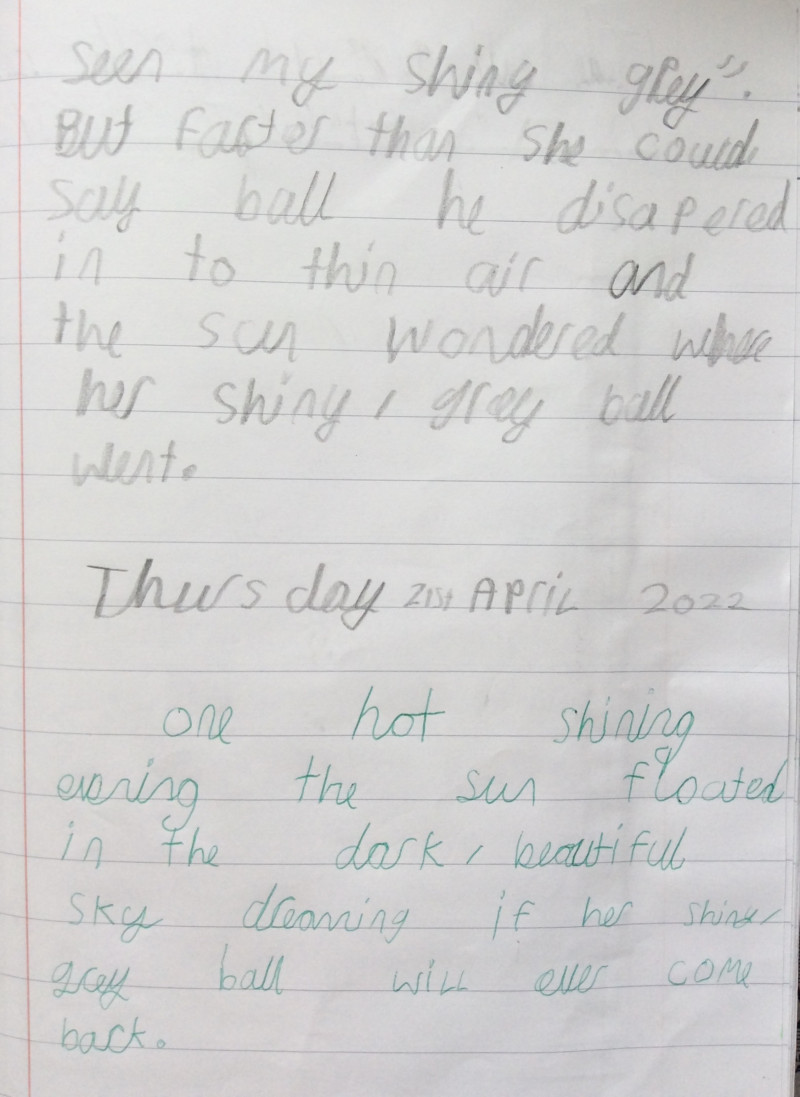 seen my shing grey".
But faster than she could
say ball he disapered
in to thin air and
the sun wondered where
her shiny, grey ball
went.
Thursday 21st April 2022
one hot shining
evening the sun floated
in the dark, beautiful
sky dreaming if her shiny,
grey ball will ever come
back.